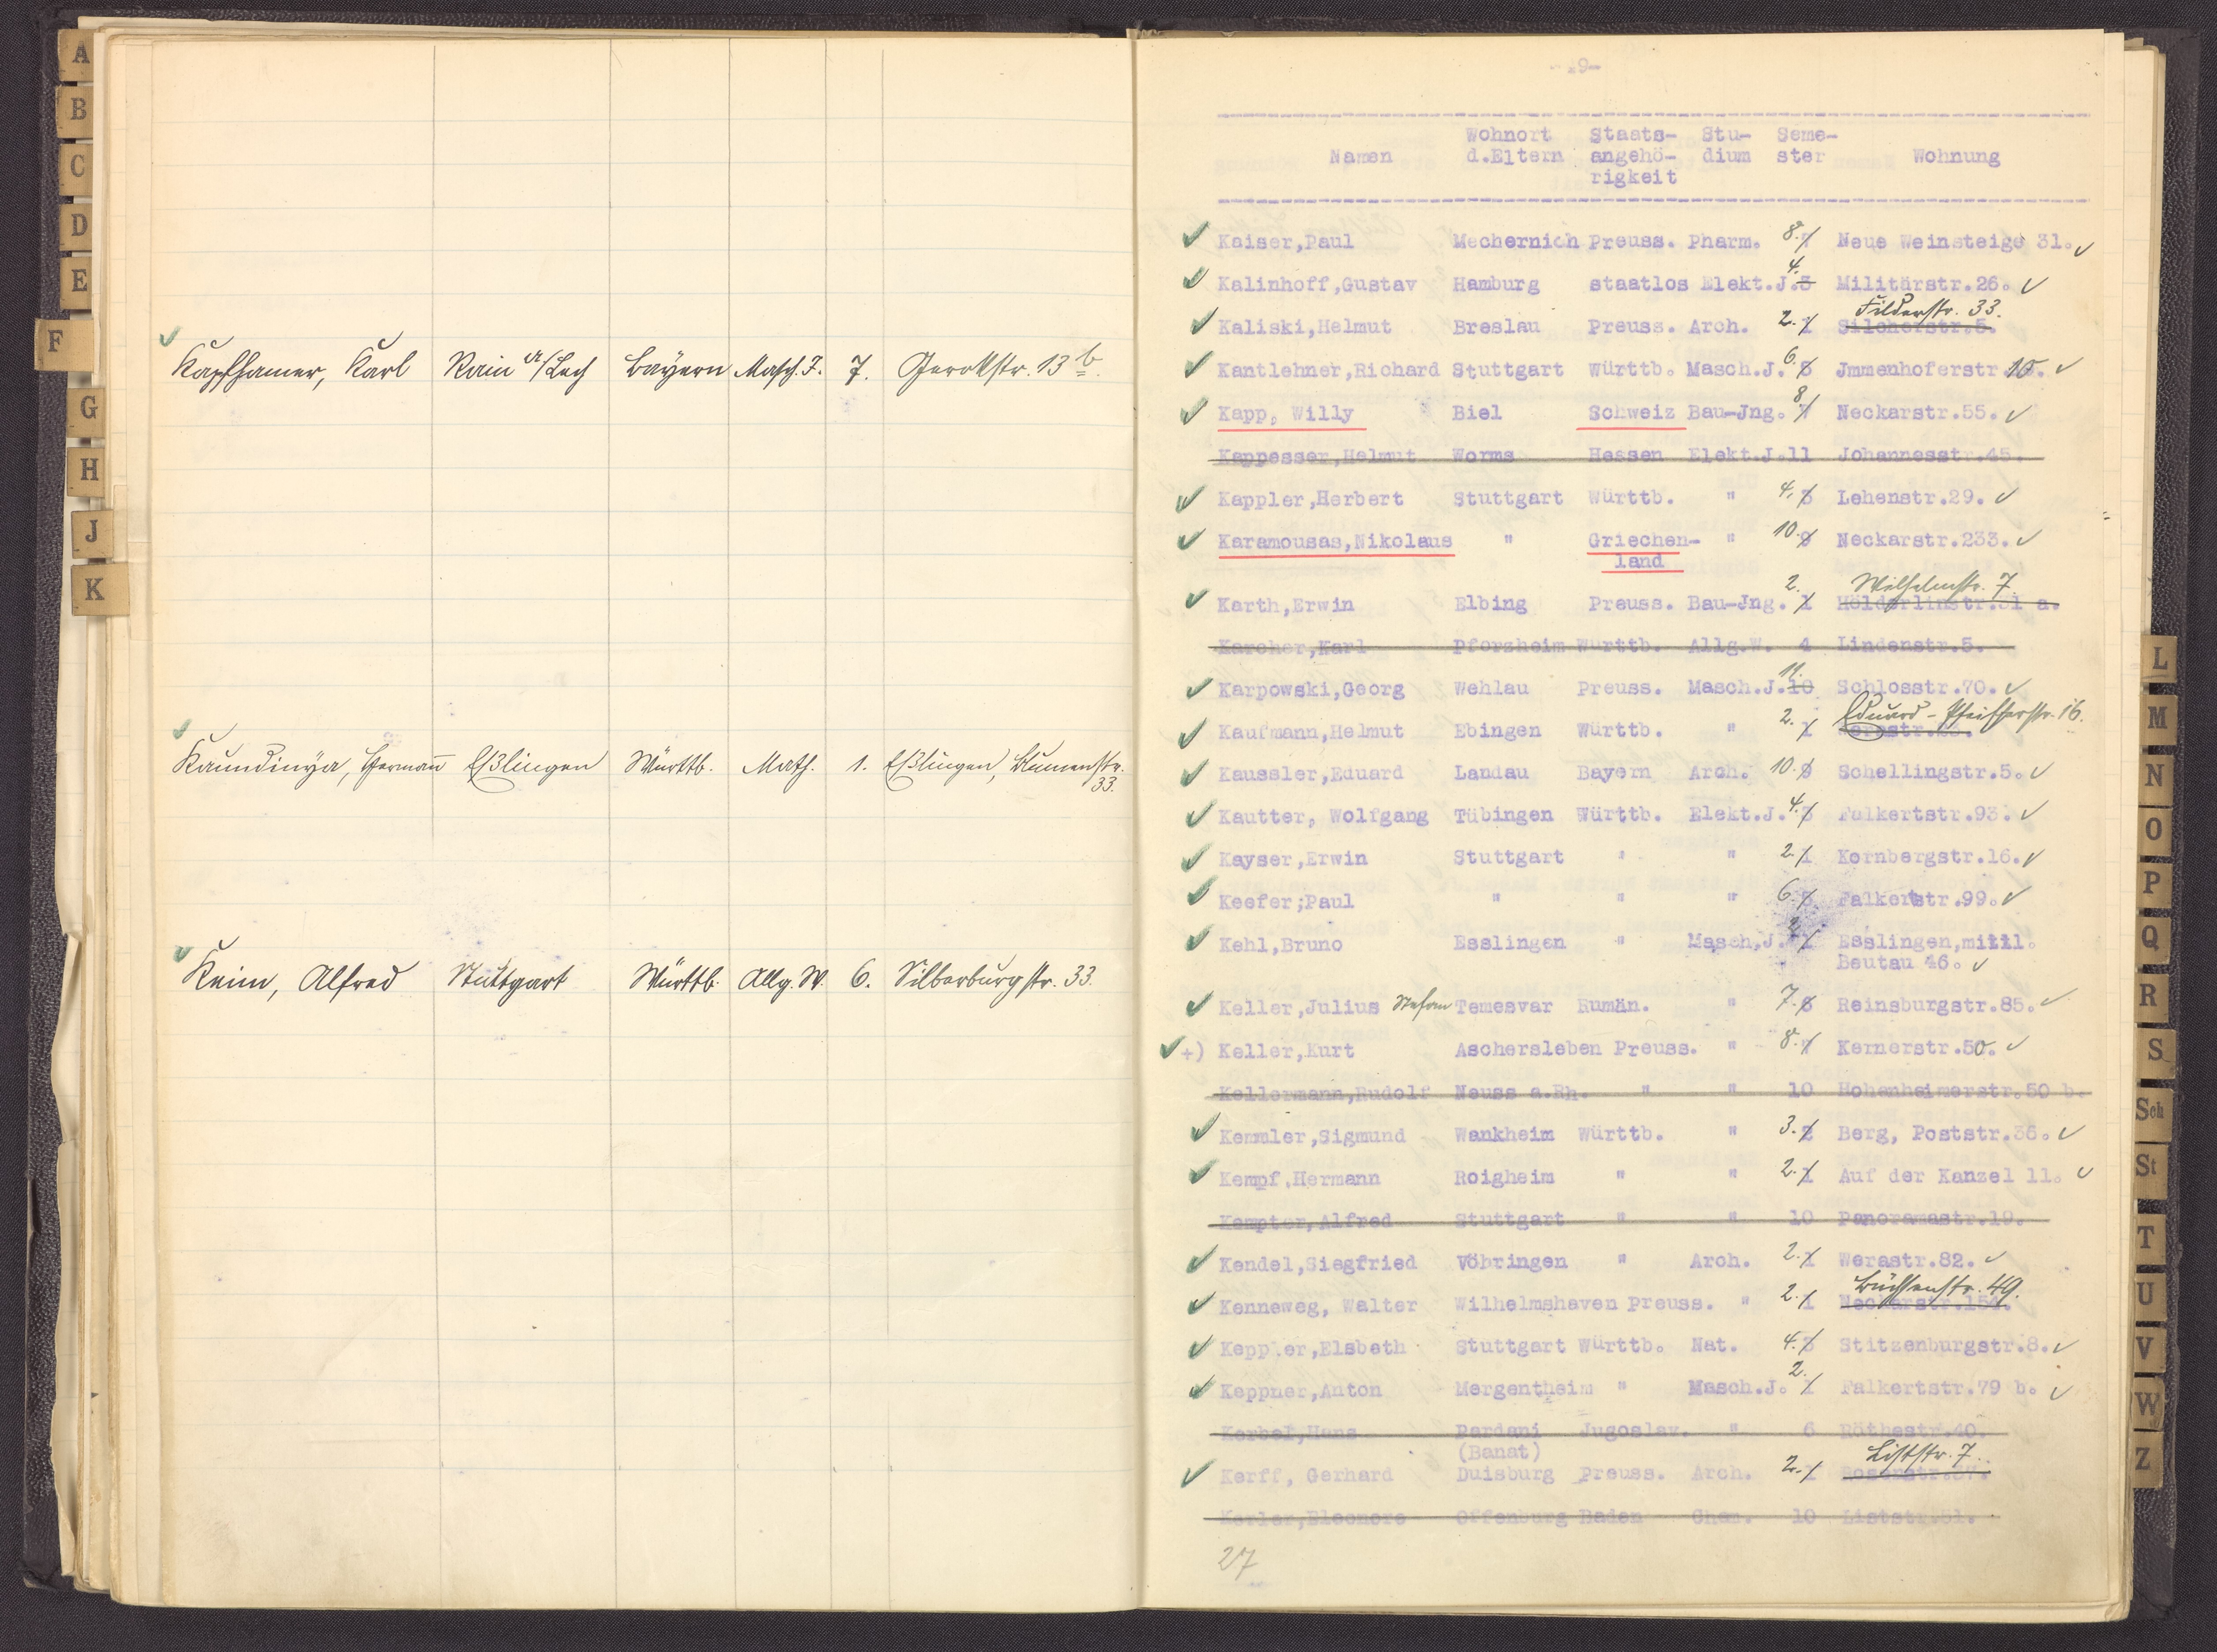 A
B
C
D
E
F
G
H
J
K
Kapfhamer, Karl Rain a/Lech Bayern Masch. J. 7. Gerokstr. 13 b.
Kaundinya, Hermann Eßlingen Württb. Math. 1. Eßlingen, Blumenstr. 33.
Keim, Alfred Stuttgart Württb. Allg. W. 6. Silberburgstr. 33.
-29-
Wohnort Staats- Stu- Seme-
Namen d.Eltern angehö- dium ster Wohnung
rigkeit
Kaiser,Paul Mechernich Preuss. Pharm. 8. 7 Neue Weinsteige 31.
Kalinhoff,Gustav Hamburg staatlos Elekt.J. 4. 3 Militärstr.26.
Filderstr. 33.
Kaliski,Helmut Breslau Preuss. Arch. 2. 1 Silcherstr.5.
Kantlehner,Richard Stuttgart Württb. Masch.J. 6. 5 Jmmenhoferstr 10.
Kapp, Willy Biel Schweiz Bau-Jng. 8 7 Neckarstr.55.
Kappesser,Helmut Worms Hessen Elekt.J.11 Johannesstr.45.
Kappler,Herbert Stuttgart Württb. " 4. 3 Lehenstr.29.
Karamousas,Nikolaus " Griechen- " 10. 9 Neckarstr.233.
land
Wilhelmstr. 7.
Karth,Erwin Elbing Preuss. Bau-Jng. 2. 1 Hölderlinstr.31 a.
Karcher,Karl Pforzheim Württb. Allg.W. 4 Lindenstr.5.
Karpowski,Georg Wehlau Preuss. Masch.J. 11. 10 Schlosstr.70.
Eduard-Pfeifferstr. 16.
Kaufmann,Helmut Ebingen Württb. " 2. 1
Kaussler,Eduard Landau Bayern Arch. 10. 9 Schellingstr.5.
Kautter, Wolfgang Tübingen Württb. Elekt.J. 4. 3 Falkertstr.93.
Kayser,Erwin Stuttgart " " 2. 1 Kornbergstr.16.
Keefer;Paul " " " 6. 5 Falkertstr.99.
Kehl,Bruno Esslingen " Masch,J. 2 1 Esslingen,mittl.
Beutau 46.
Keller,Julius Stefan Temesvar Rumän. " 7. 6 Reinsburgstr.85.
+) Keller,Kurt Aschersleben Preuss. " 8. 7 Kernerstr.50.
Kellermann,Rudolf Neuss a.Rh. " " 10 Hohenheimerstr.50 b.
Kemmler,Sigmund Wankheim Württb. " 3. 2 Berg, Poststr.36.
Kempf,Hermann Roigheim " " 2. 1 Auf der Kanzel 11.
Kempter,Alfred Stuttgart " " 10 Panoramastr.19.
Kendel,Siegfried Vöhringen " Arch. 2. 1 Werastr.82.
Büchsenstr. 49.
Kenneweg, Walter Wilhelmshaven Preuss. " 2. 1 Neckarstr.154.
Keppler,Elsbeth Stuttgart Württb. Nat. 4. 3 Stitzenburgstr.8.
Keppner,Anton Mergentheim " Masch.J. 2. 1 Falkertstr.79 b.
Kerbel,Hans Pardani Jugoslav. " 6 Röthestr.40.
(Banat)
Liststr. 7.
Kerff, Gerhard Duisburg Preuss. Arch. 2. 1
Kerler,Eleonore Offenburg Baden Chem. 10 Liststr.31.
27
L
M
N
O
P
Q
R
S
Sch
St
T
U
V
W
Z